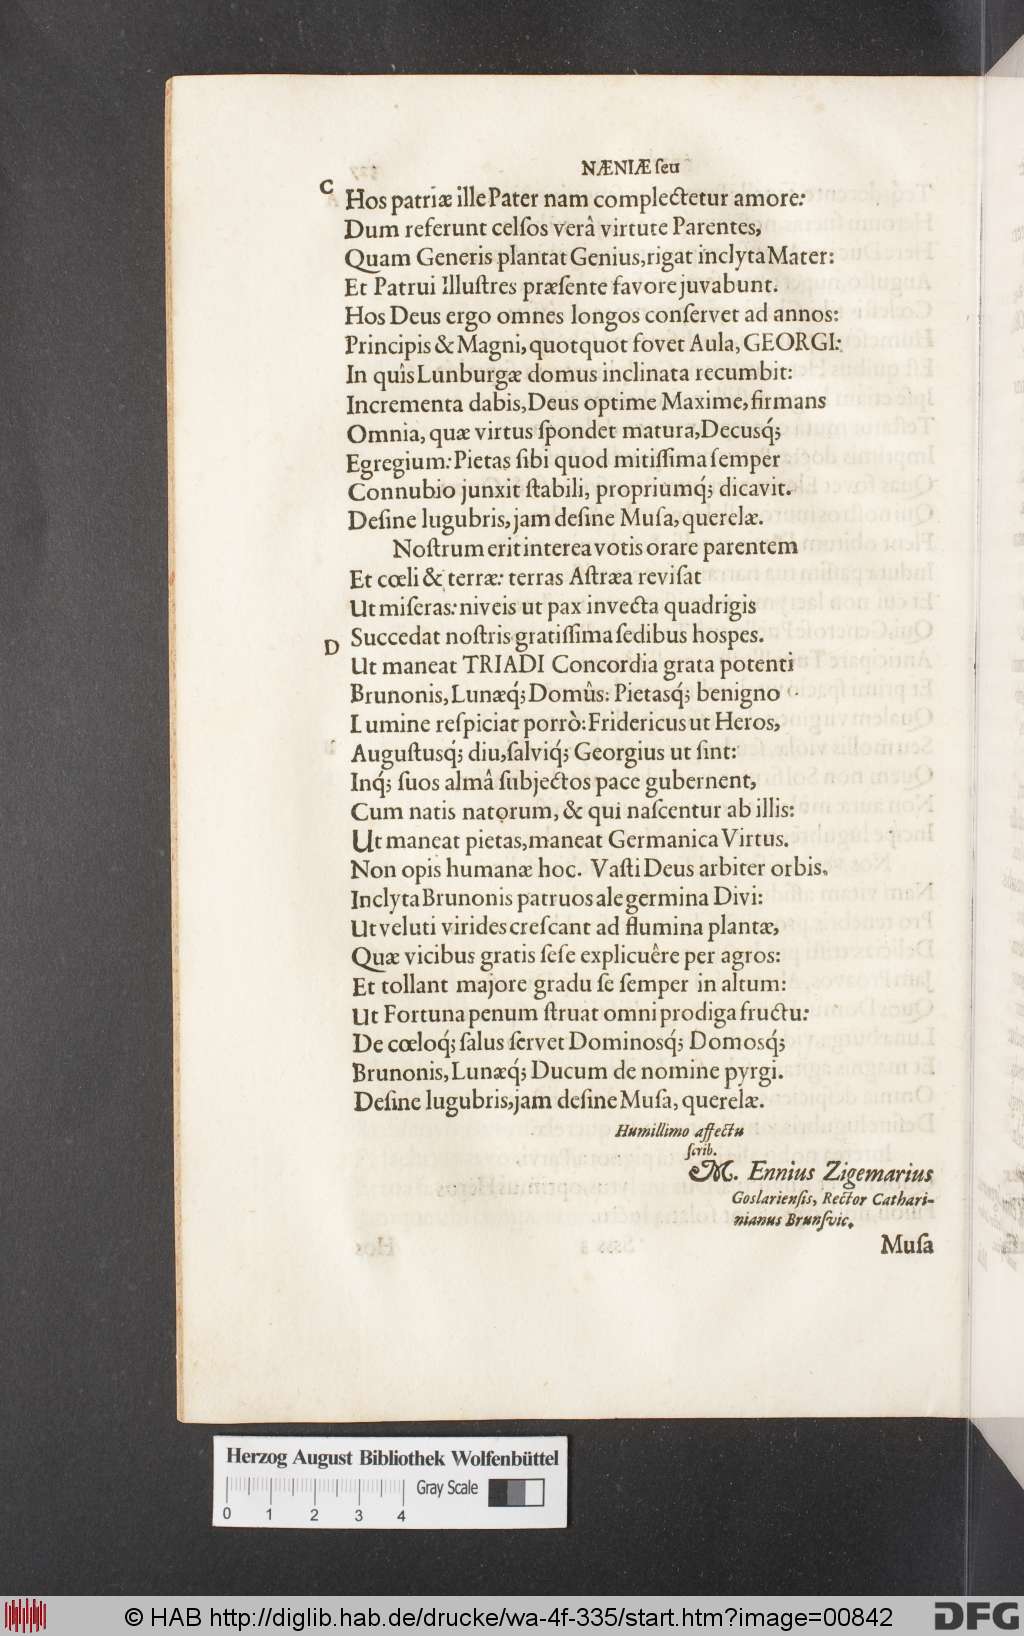 NÆNIÆ ſeu
C
Hos patriæ ille Pater nam complectetur amore:
Dum referunt celſos verâ virtute Parentes,
Quam Generis plantat Genius, rigat inclyta Mater:
Et Patrui Illuſtres præſente favore juvabunt.
Hos Deus ergo omnes longos conſervet ad annos:
Principis & Magni, quotquot fovet Aula, GEORGI:
In quîs Lunburgæ domus inclinata recumbit:
Incrementa dabis, Deus optime Maxime, firmans
Omnia, quæ virtus ſpondet matura, Decusq́;
Egregium: Pietas ſibi quod mitiſſima ſemper
Connubio junxit ſtabili, propriumq́; dicavit.
Deſine lugubris, jam deſine Muſa, querelæ.
Noſtrum erit interea votis orare parentem
Et cœli & terræ: terras Aſtræa reviſat
Ut miſeras: niveis ut pax invecta quadrigis
Succedat noſtris gratiſſima ſedibus hospes.
D
Ut maneat TRIADI Concordia grata potenti
Brunonis, Lunæq́; Domûs: Pietasq́; benigno
Lumine reſpiciat porrò: Fridericus ut Heros,
Auguſtusq́; diu, ſalviq́; Georgius ut ſint:
Inq́; ſuos almâ ſubjectos pace gubernent,
Cum natis natorum, & qui naſcentur ab illis:
Ut maneat pietas, maneat Germanica Virtus.
Non opis humanæ hoc. Vaſti Deus arbiter orbis,
Inclyta Brunonis patruos ale germina Divi:
Ut veluti virides creſcant ad flumina plantæ,
Quæ vicibus gratis ſeſe explicuêre per agros:
Et tollant majore gradu ſe ſemper in altum:
Ut Fortuna penum ſtruat omni prodiga fructu:
De cœloq́; ſalus ſervet Dominosq́; Domosq́;
Brunonis, Lunæq́; Ducum de nomine pyrgi.
Deſine lugubris, jam deſine Muſa, querelæ.
Humillimo affectu
ſcrib.
M. Ennius Zigemarius
Goslarienſis, Rector Cathari-
nianus Brunſvic.
Muſa
Herzog August Bibliothek Wolfenbüttel
Gray Scale
0 1 2 3 4
© HAB http://diglib.hab.de/drucke/wa-4f-335/start.htm?image=00842
DFG